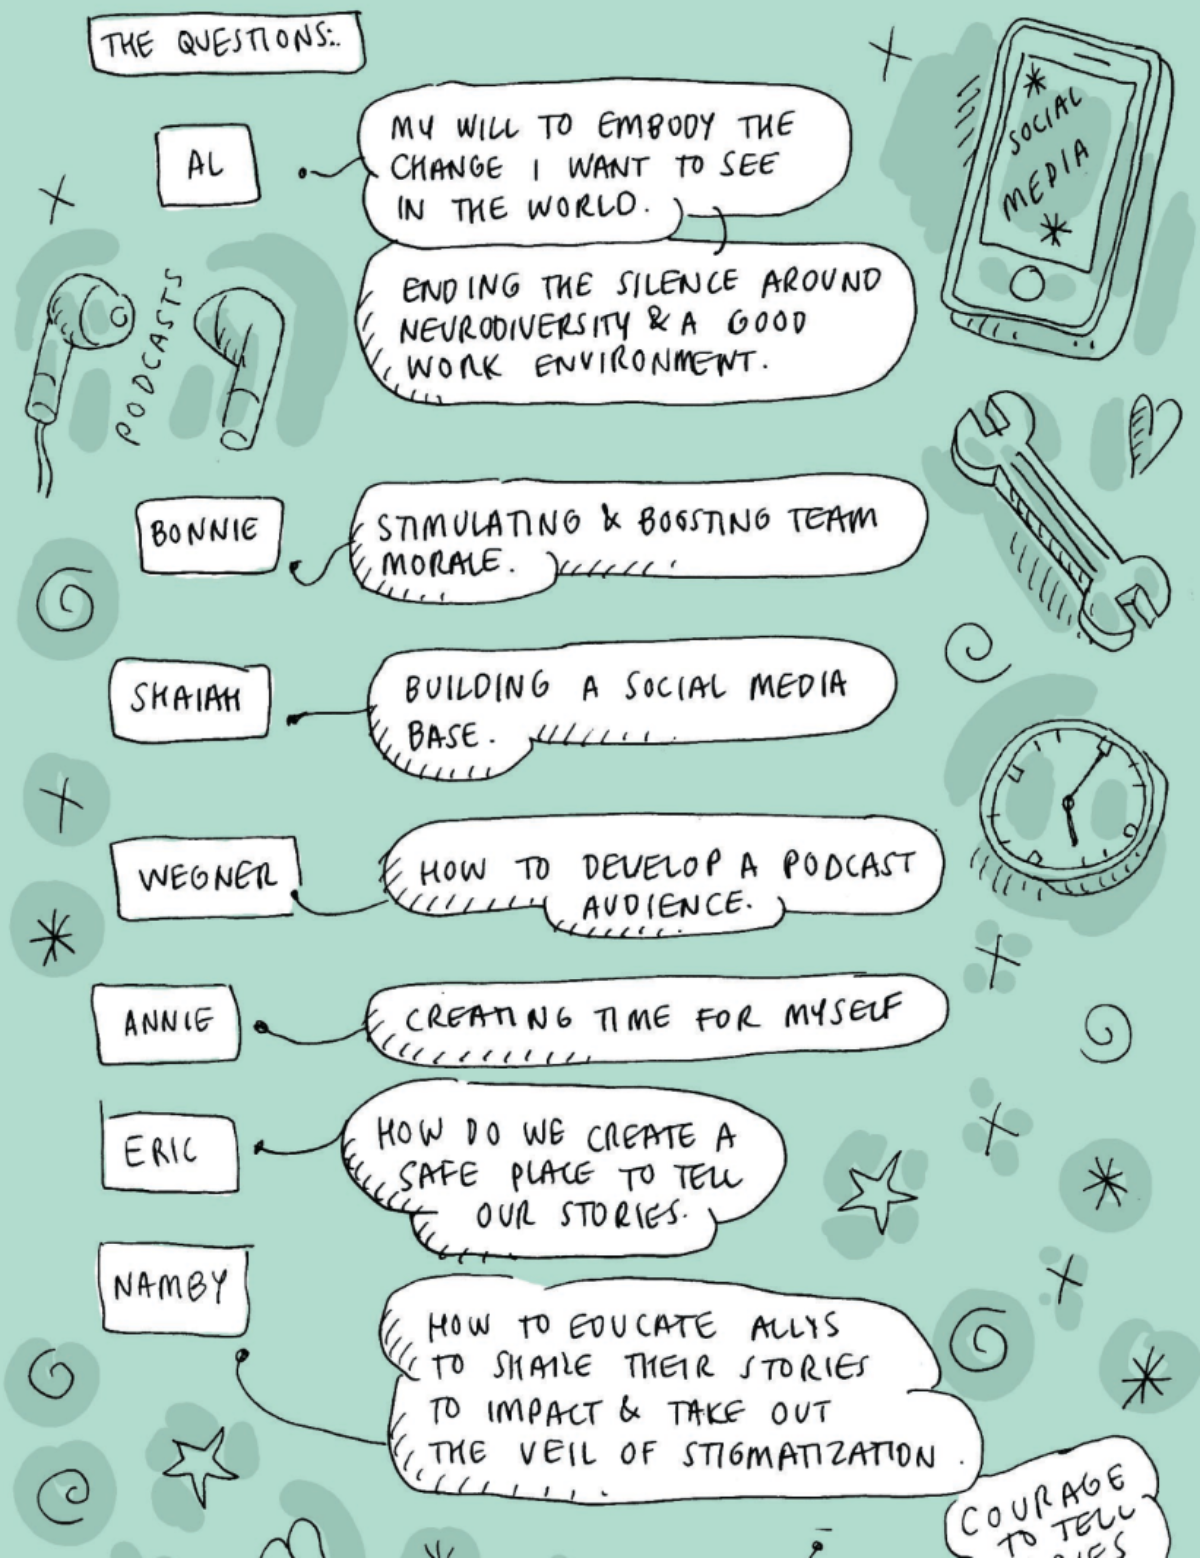 THE QUESTIONS:.
AL
MY WILL TO EMBODY THE
CHANGE I WANT TO SEE
IN THE WORLD.
ENDING THE SILENCE AROUND
NEURODIVERSITY & A GOOD
WORK ENVIRONMENT.
* SOCIAL
MEDIA *
PODCASTS
BONNIE
STIMULATING & BOOSTING TEAM
MORALE.
SHAIAH
BUILDING A SOCIAL MEDIA
BASE.
WEGNER
HOW TO DEVELOP A PODCAST
AUDIENCE.
ANNIE
CREATING TIME FOR MYSELF
ERIC
HOW DO WE CREATE A
SAFE PLACE TO TELL
OUR STORIES.
NAMBY
HOW TO EDUCATE ALLYS
TO SHARE THEIR STORIES
TO IMPACT & TAKE OUT
THE VEIL OF STIGMATIZATION.
COURAGE
TO TELL